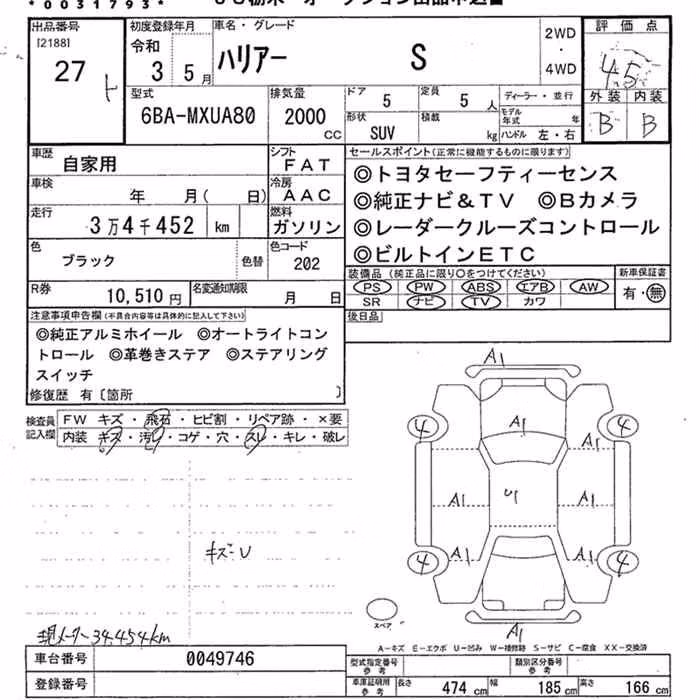 *0031793*
出品番号
[2188]
27 ト
初度登録年月
令和
3 5 月
車名・グレード
ハリアー S
2WD
・
4WD
評価点
4.5
外装 内装
B B
型式
6BA-MXUA80
排気量
2000
CC
ドア
5
定員
5 人
ディーラー・並行
形状
SUV
積載
kg
モデル年式 年
ハンドル 左・右
車歴
自家用
シフト
FAT
車検
年 月( 日)
冷房
AAC
走行
3万4千452 km
燃料
ガソリン
色
ブラック
色替
色コード
202
R券
10,510円
名変通知期限
月 日
セールスポイント(正常に機能するものに限ります)
◎トヨタセーフティーセンス
◎純正ナビ&TV ◎Bカメラ
◎レーダークルーズコントロール
◎ビルトインETC
装備品 (純正品に限り○をつけてください)
PS PW ABS エアB AW
SR ナビ TV カワ
新車保証書
有・無
後日品
注意事項申告欄(不具合内容等は具体的に記入して下さい)
◎純正アルミホイール ◎オートライトコン
トロール ◎革巻きステア ◎ステアリング
スイッチ
修復歴 有〔箇所 〕
検査員
記入欄
FW キズ・飛石・ヒビ割・リペア跡・×要
内装 キズ・汚レ・コゲ・穴・スレ・キレ・破レ
キズ=U
現メーター34,454km
A1
4 A1 4
A1 A1
A1 U1 A1
A1 A1
4 4
スペア
A1
A-キズ E-エクボ U-凹み W-補修跡 S-サビ C-腐食 XX-交換済
車台番号 0049746
登録番号
型式指定番号
参考
類別区分番号
参考
車庫証明用
参考
長さ 474 cm 幅 185 cm 高さ 166 cm